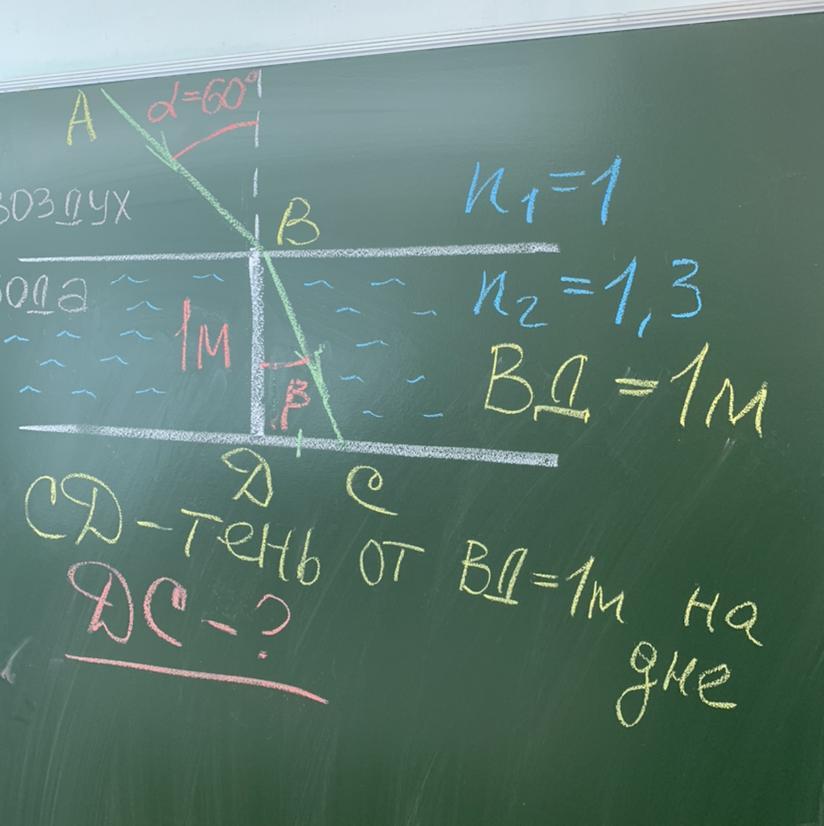 A
α=60°
воздух
B
n₁=1
вода
n₂=1,3
1м
β
ВД=1м
Д
С
СД-тень от ВД=1м на
дне
ДС-?